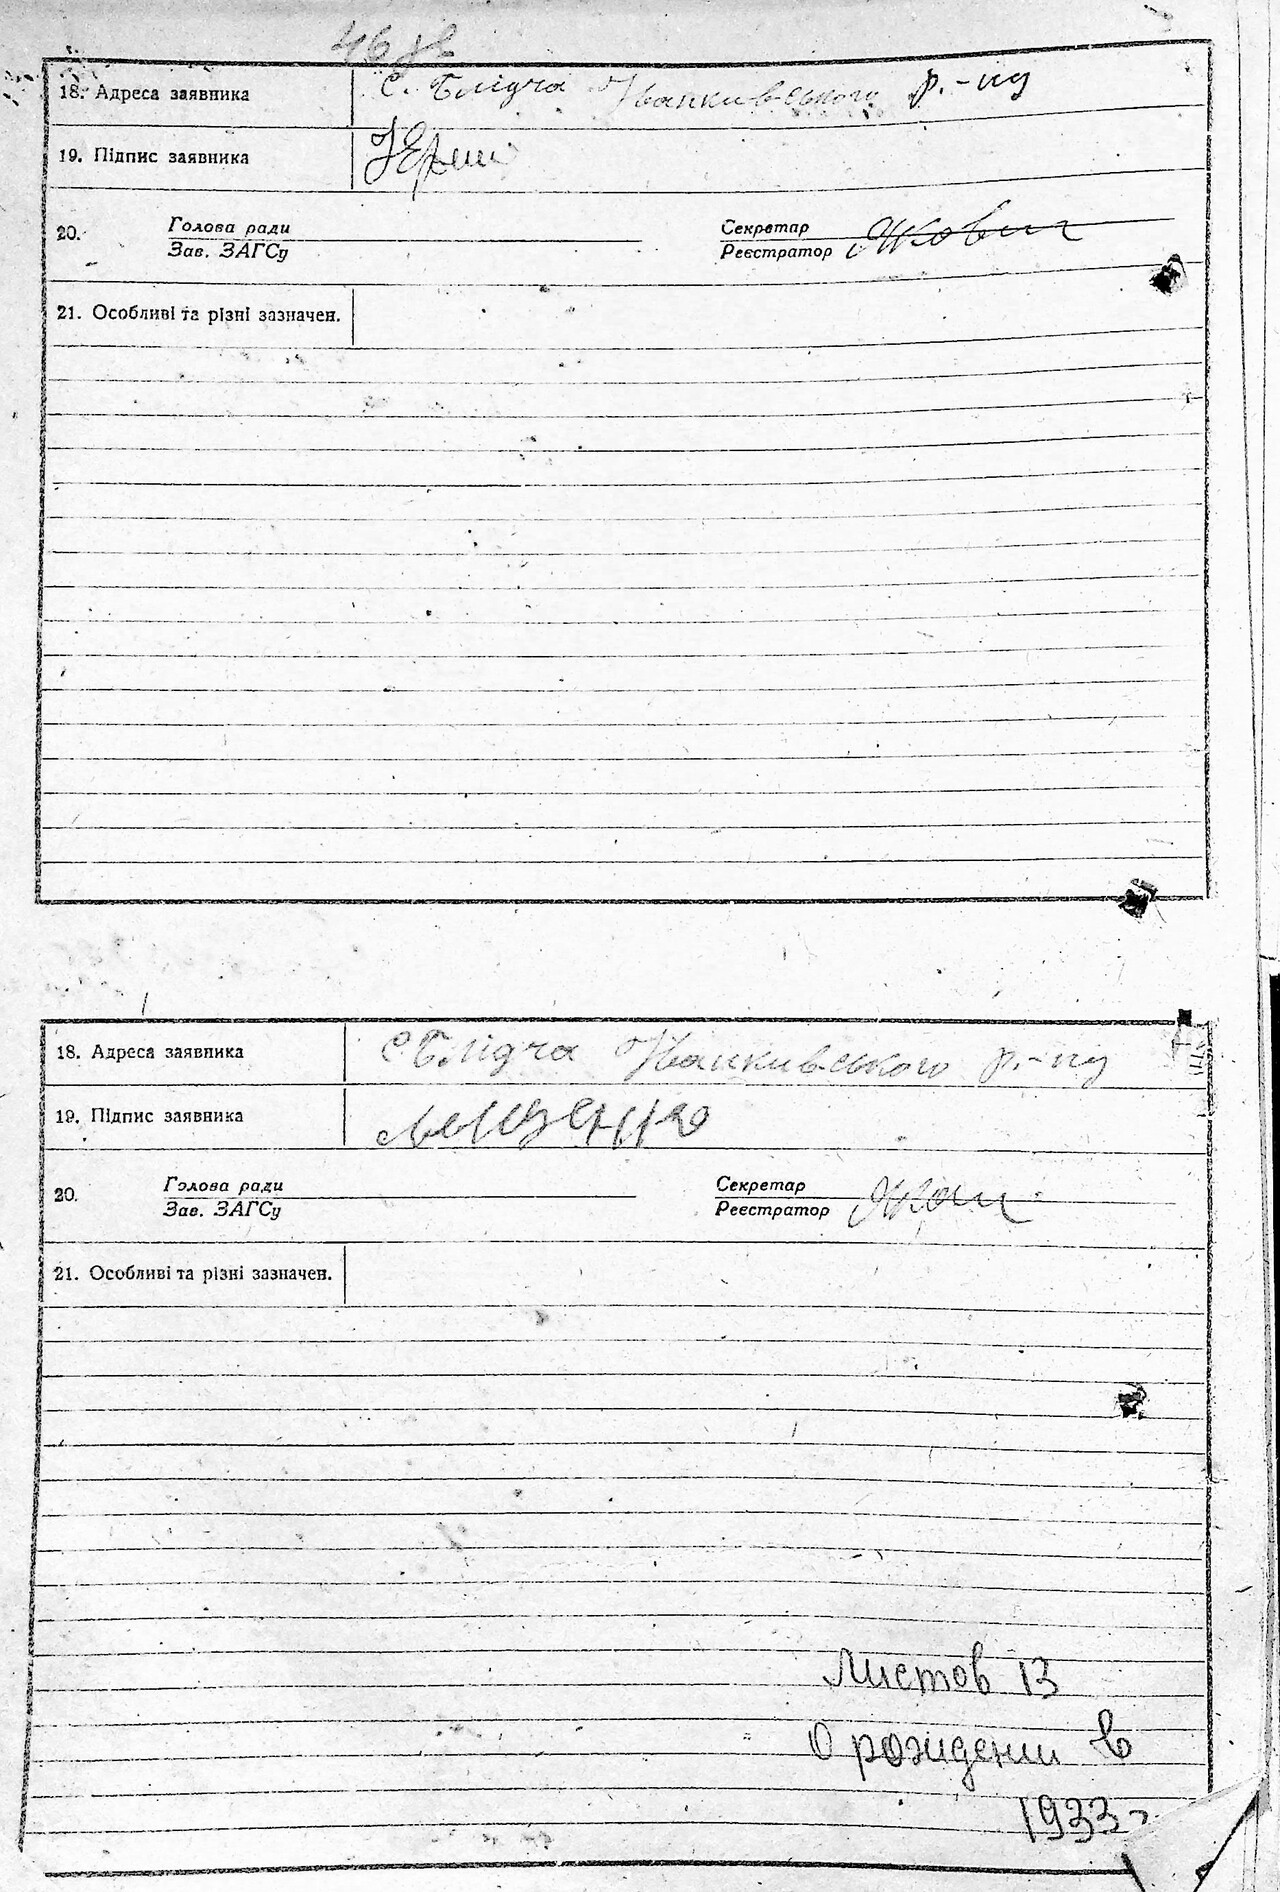 46 зв
18. Адреса заявника с. Блідча Іванківського р.-ну
19. Підпис заявника
20. Голова ради Секретар
Зав. ЗАГСу Реєстратор
21. Особливі та різні зазначен.
18. Адреса заявника с. Блідча Іванківського р.-ну
19. Підпис заявника
20. Голова ради Секретар
Зав. ЗАГСу Реєстратор
21. Особливі та різні зазначен.
Листов 13
О рождении в
1933 г